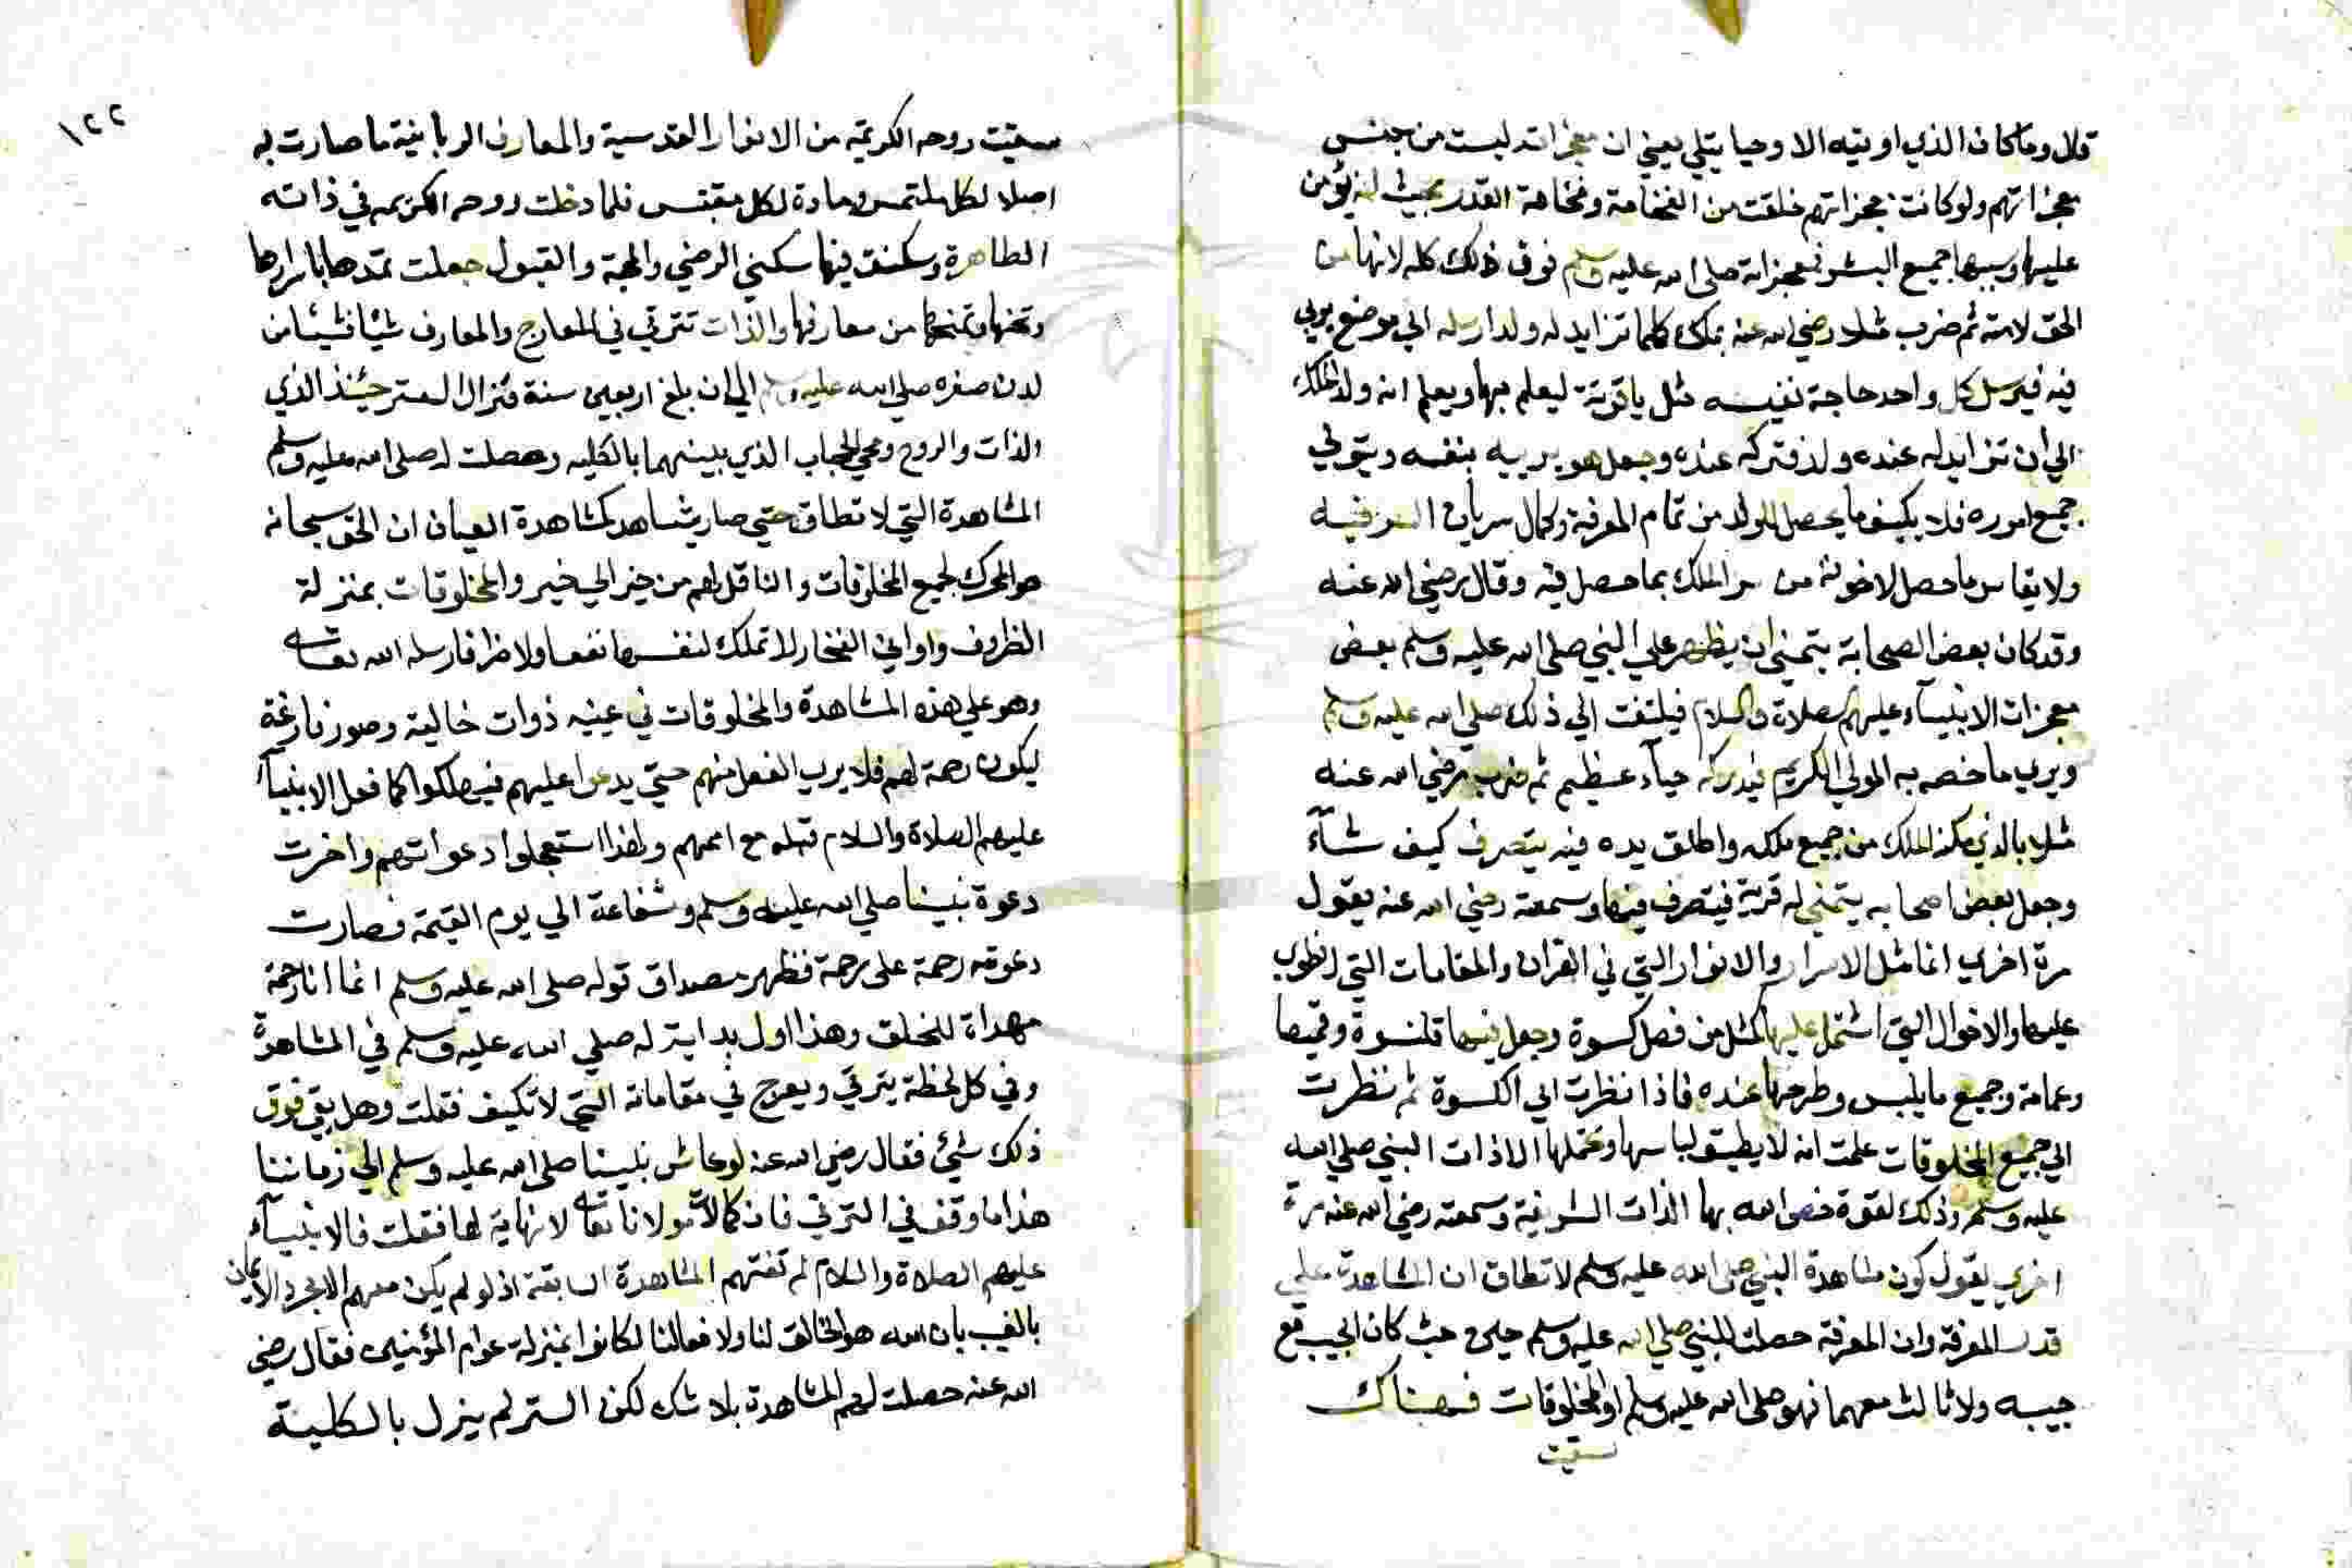 قال وما كان الذي اوتيته الا وحيا يتلي يعني ان معجزاته ليست من جنس
معجزاتهم ولو كانت معجزاتهم خلقت من الفخامة وفخامة القدر بحيث انه يؤمن
عليها وبسببها جميع البشر فمعجزاته صلى الله عليه وسلم فوق ذلك كله لانها من
الحق لامته ثم ضرب مثلا رضي الله عنه بملك كلما تزايد له ولد ارسله الي موضع يربي
فيه فيرسل كل واحد حاجة نفيسه مثل ياقوتة ليعلم بها ويعلم انه ولد الملك
الي ان تزايد له عنده ولد فتركه عنده وجعل هو يربيه بنفسه ويتولي
جميع اموره فلا يكيف ما يحصل للولد من تمام المعرفة وكمال سريان السر فيه
ولا يقاس ما حصل لاخوته من سر الملك بما حصل فيه وقال رضي الله عنه
وقد كان بعض الصحابة يتمني ان يظهر علي النبي صلى الله عليه وسلم بعض
معجزات الانبيآء عليهم الصلاة والسلام فيلتفت الي ذلك صلي الله عليه وسلم
ويري ما خصه به المولي الكريم فيدركه حيآء عظيم ثم ضرب رضي الله عنه
مثلا بالذي مكنه الملك من جميع ملكه واطلق يده فيه يتصرف كيف شآء
وجعل بعض اصحابه يتمني له قرية فيتصرف فيها وسمعته رضي الله عنه يقول
مرة اخري انما مثل الاسرار والانوار التي في القران والمقامات التي انطوي
عليها والاحوال التي اشتمل عليها كمثل من فصل كسوة وجعل فيها قلنسوة وقميصا
وعمامة وجميع ما يلبس وطرحها عنده فاذا نظرت الي الكسوة ثم نظرت
الي جميع المخلوقات علمت انه لا يطيق لباسها وتحملها الا ذات النبي صلي الله
عليه وسلم وذلك لقوة خص الله بها الذات الشريفة وسمعته رضي الله عنه مرة
اخري يقول كون مشاهدة النبي صلى الله عليه وسلم لا تطاق ان المشاهدة علي
قدر المعرفة وان المعرفة حصلت للنبي صلي الله عليه وسلم حين كان الحبيب مع
حبيبه ولا ثالث معهما فهو صلى الله عليه وسلم اول المخلوقات فهناك
سقيت
١٢٢
سقيت روحه الكريمة من الانوار القدسية والمعارف الربانية ما صارت به
اصلا لكل ملتمس ومادة لكل مقتبس فلما دخلت روحه الكريمه في ذاته
الطاهرة وسكنت فيها سكني الرضي والمحبة والقبول جعلت تمدها باسرارها
وتمنحها من معارفها والذات تترقي في المعارج والمعارف شيئا فشيئا من
لدن صغره صلي الله عليه وسلم الي ان بلغ اربعين سنة فزال الستر حينئذ الذي
الذات والروح ومحي الحجاب الذي بينهما بالكليه وحصلت له صلى الله عليه وسلم
المشاهدة التي لا تطاق حتي صار يشاهد كمشاهدة العيان ان الحق سبحانه
هو المحرك لجميع المخلوقات والناقل لهم من حيز الي حيز والمخلوقات بمنزلة
الظروف واواني الفخار لا تملك لنفسها نفعا ولا ضرا فارسله الله تعالى
وهو علي هذه المشاهدة والمخلوقات في عينه ذوات خالية وصور فارغة
ليكون رحمة لهم فلا يري الفعل منهم حتي يدعوا عليهم فيهلكوا كما فعل الانبيآ
عليهم الصلاة والسلام قبله مع اممهم ولهذا استعجلوا دعواتهم واخرت
دعوة نبينا صلي الله عليه وسلم وشفاعة الي يوم القيمة فصارت
دعوته رحمة على رحمة فظهر مصداق قوله صلى الله عليه وسلم انما انا رحمة
مهداة للخلق وهذا اول بداية له صلي الله عليه وسلم في المشاهدة
وفي كل لحظة يترقي ويعرج في مقاماته التي لا تكيف فقلت وهل بقي فوق
ذلك شيئ فقال رضي الله عنه لو عاش نبينا صلى الله عليه وسلم الي زماننا
هذا ما وقف في الترقي فان كمالات مولانا تعالى لا نهاية لها فقلت فالانبيآء
عليهم الصلاة والسلام لم تفتهم المشاهدة السابقة اذ لو لم يكن معهم الا مجرد الايمان
بالغيب بان الله هو الخالق لنا ولافعالنا لكانوا بمنزلة عوام المؤمنين فقال رضي
الله عنه حصلت لهم المشاهدة بلا شك لكن الستر لم يزل بالكلية